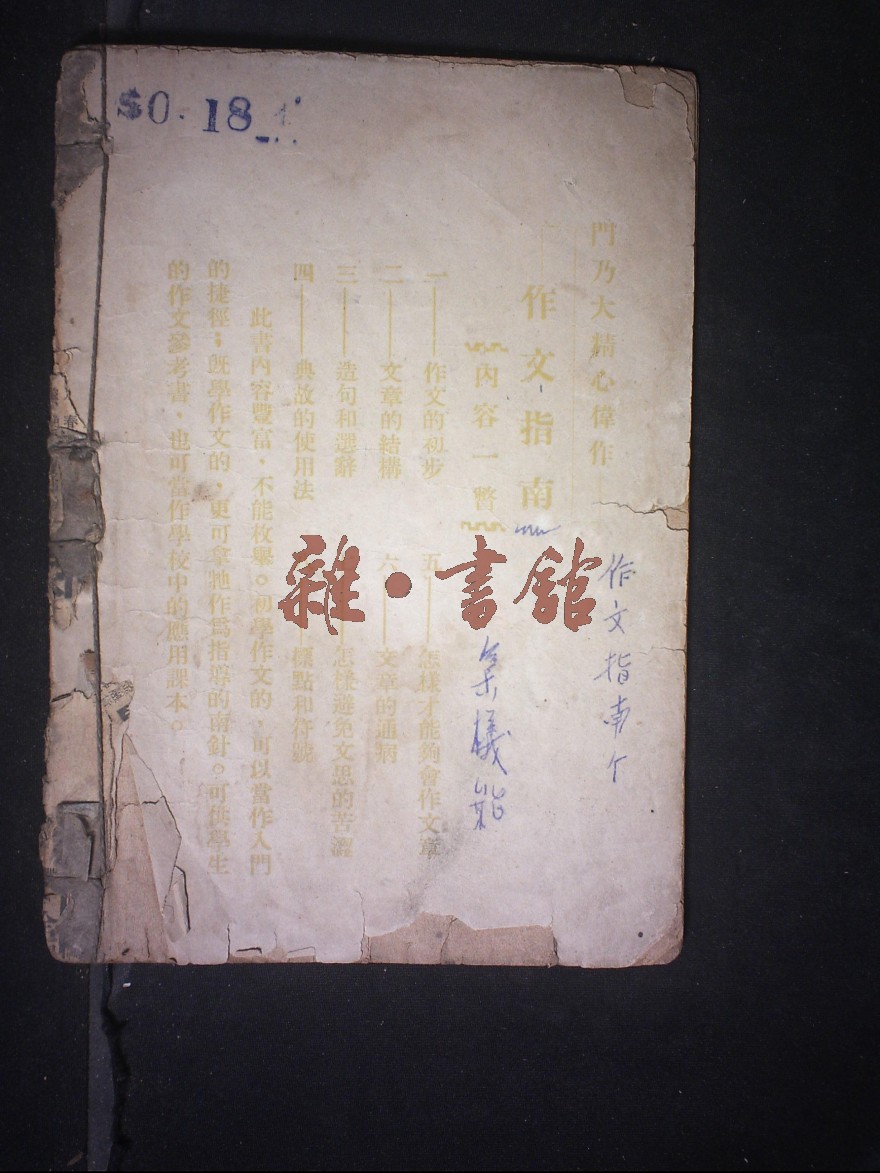 $0.18
門乃大精心偉作
作文指南
內容一瞥
一——作文的初步
二——文章的結構
三——造句和選辭
四——典故的使用法
五——怎樣才能夠會作文章
六——文章的通病
怎樣避免文思的苦澀
標點和符號
此書內容豐富、不能枚舉。初學作文的、可以當作入門
的捷徑；旣學作文的、更可拿牠作爲指導的南針。可供學生
的作文參考書、也可當作學校中的應用課本。
作文指南
雜·書館